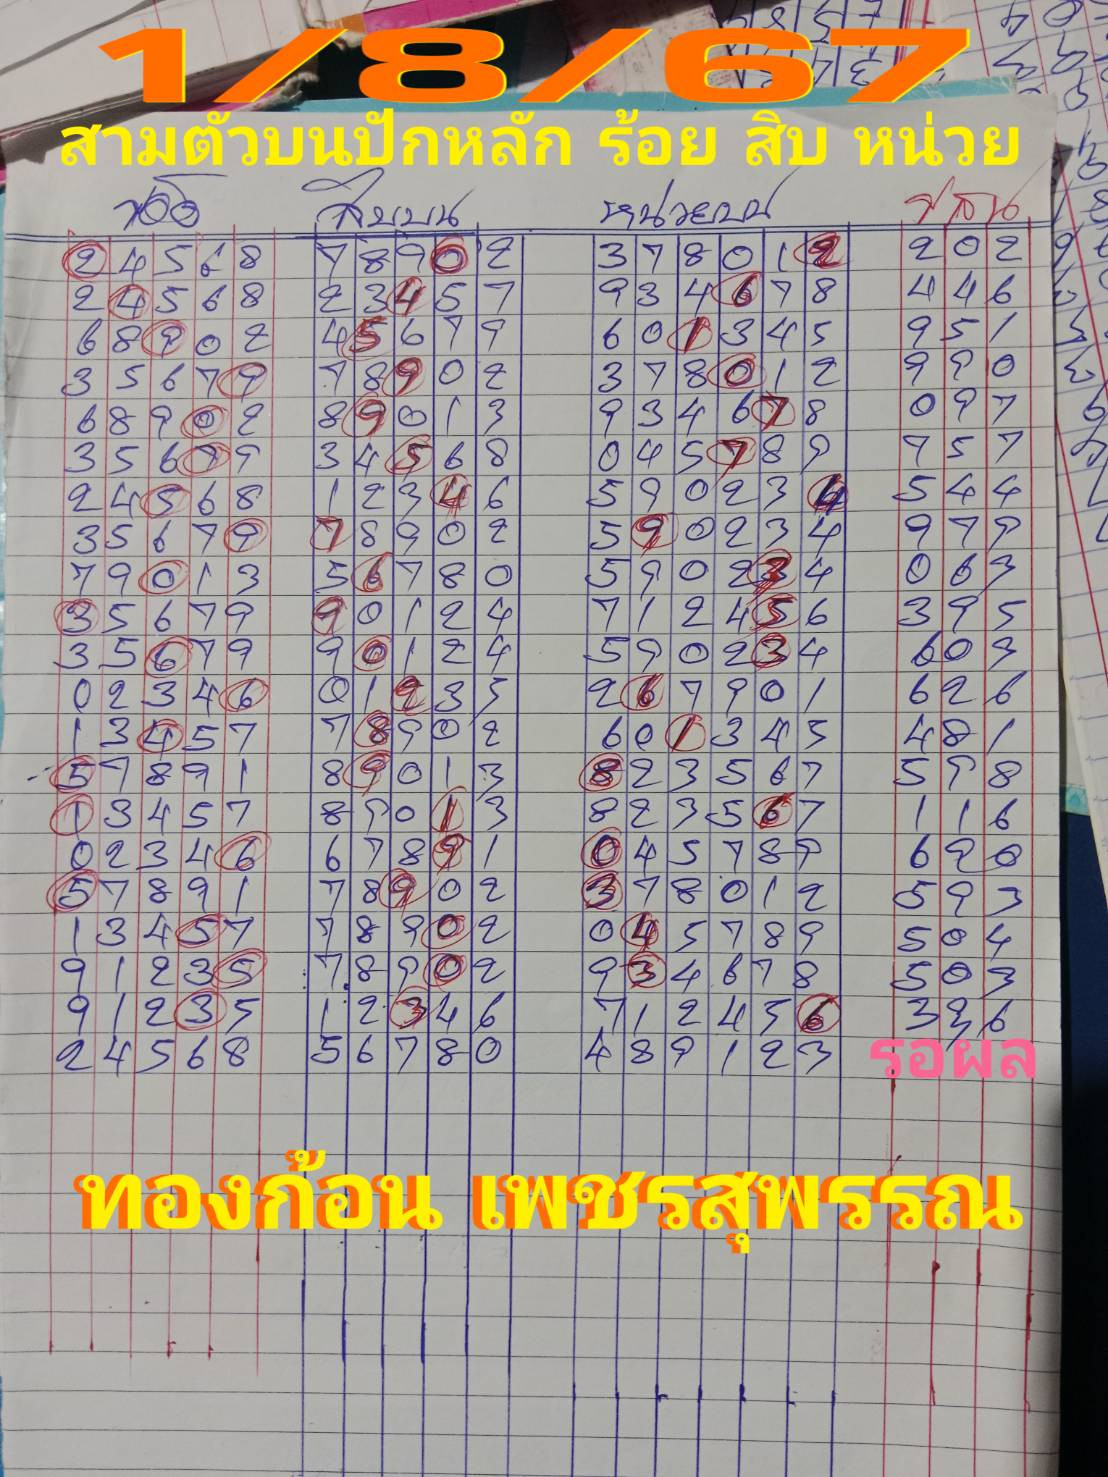 1/8/67
สามตัวบนปักหลัก ร้อย สิบ หน่วย
สิบบน หน่วยบน
2 4 5 6 8 7 8 9 0 2 3 7 8 0 1 2 2 0 2
2 4 5 6 8 2 3 4 5 7 9 3 4 6 7 8 4 4 6
6 8 9 0 2 4 5 6 7 9 6 0 1 3 4 5 9 5 1
3 5 6 7 9 7 8 9 0 2 3 7 8 0 1 2 9 9 0
6 8 9 0 2 8 9 0 1 3 9 3 4 6 7 8 0 9 7
3 5 6 7 9 3 4 5 6 8 0 4 5 7 8 9 7 5 7
2 4 5 6 8 1 2 3 4 6 5 9 0 2 3 4 5 4 4
3 5 6 7 9 7 8 9 0 2 5 9 0 2 3 4 9 7 9
7 9 0 1 3 5 6 7 8 0 5 9 0 2 3 4 0 6 3
3 5 6 7 9 9 0 1 2 4 7 1 2 4 5 6 3 9 5
3 5 6 7 9 9 0 1 2 4 5 9 0 2 3 4 6 0 3
0 2 3 4 6 0 1 2 3 5 2 6 7 9 0 1 6 2 6
1 3 4 5 7 7 8 9 0 2 6 0 1 3 4 5 4 8 1
5 7 8 9 1 8 9 0 1 3 8 2 3 5 6 7 5 9 8
1 3 4 5 7 8 9 0 1 3 8 2 3 5 6 7 1 1 6
0 2 3 4 6 6 7 8 9 1 0 4 5 7 8 9 6 9 0
5 7 8 9 1 7 8 9 0 2 3 7 8 0 1 2 5 9 3
1 3 4 5 7 7 8 9 0 2 0 4 5 7 8 9 5 0 4
9 1 2 3 5 7 8 9 0 2 9 3 4 6 7 8 5 0 3
9 1 2 3 5 1 2 3 4 6 7 1 2 4 5 6 3 3 6
2 4 5 6 8 5 6 7 8 0 4 8 9 1 2 3 รอผล
ทองก้อน เพชรสุพรรณ